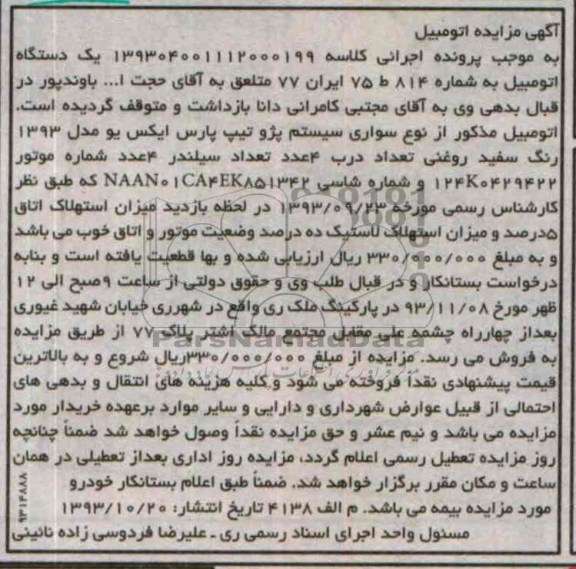 آگهی مزایده اتومبیل
به موجب پرونده اجرائی کلاسه ۱۳۹۳۰۴۰۰۱۱۱۲۰۰۰۱۹۹ یک دستگاه
اتومبیل به شماره ۸۱۴ ط ۷۵ ایران ۷۷ متعلق به آقای حجت ا... باوندپور در
قبال بدهی وی به آقای مجتبی کامرانی دانا بازداشت و متوقف گردیده است.
اتومبیل مذکور از نوع سواری سیستم پژو تیپ پارس ایکس یو مدل ۱۳۹۳
رنگ سفید روغنی تعداد درب ۴عدد تعداد سیلندر ۴عدد شماره موتور
۱۲۴K۰۴۲۹۴۲۲ و شماره شاسی NAAN۰۱CA۴EK۸۵۱۳۴۲ که طبق نظر
کارشناس رسمی مورخه ۱۳۹۳/۰۷/۲۳ در لحظه بازدید میزان استهلاک اتاق
۵درصد و میزان استهلاک لاستیک ده درصد وضعیت موتور و اتاق خوب می باشد
و به مبلغ ۳۳۰/۰۰۰/۰۰۰ ریال ارزیابی شده و بها قطعیت یافته است و بنابه
درخواست بستانکار و در قبال طلب وی و حقوق دولتی از ساعت ۹صبح الی ۱۲
ظهر مورخ ۹۳/۱۱/۰۸ در پارکینگ ملک ری واقع در شهرری خیابان شهید غیوری
بعداز چهارراه چشمه علی مقابل مجتمع مالک اشتر پلاک ۷۷ از طریق مزایده
ParsNamadData
به فروش می رسد. مزایده از مبلغ ۳۳۰/۰۰۰/۰۰۰ریال شروع و به بالاترین
قیمت پیشنهادی نقداً فروخته می شود و کلیه هزینه های انتقال و بدهی های
احتمالی از قبیل عوارض شهرداری و دارایی و سایر موارد برعهده خریدار مورد
مزایده می باشد و نیم عشر و حق مزایده نقداً وصول خواهد شد ضمناً چنانچه
روز مزایده تعطیل رسمی اعلام گردد، مزایده روز اداری بعداز تعطیلی در همان
ساعت و مکان مقرر برگزار خواهد شد. ضمناً طبق اعلام بستانکار خودرو
مورد مزایده بیمه می باشد. م الف ۴۱۳۸ تاریخ انتشار: ۱۳۹۳/۱۰/۲۰
مسئول واحد اجرای اسناد رسمی ری ـ علیرضا فردوسی زاده نائینی
۹۳۱۴۸۸۸